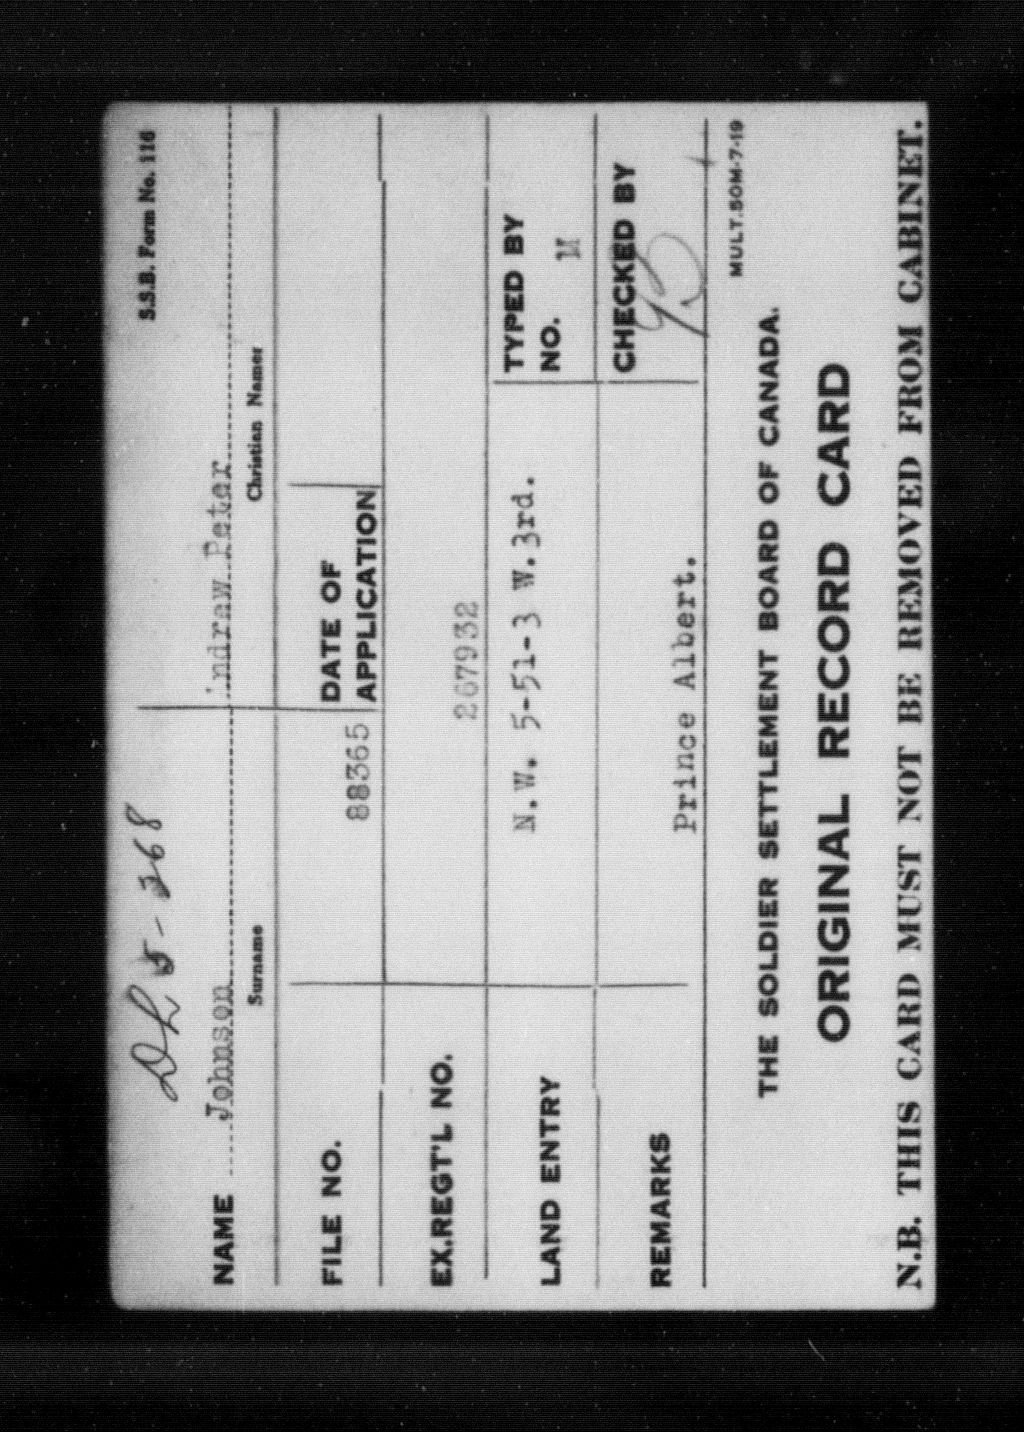 S.S.B. Form No. 116
DL 5-368
NAME Johnson 'ndraw Peter
Surname Christian Namer
FILE NO. 88365 DATE OF APPLICATION
EX.REGT'L NO. 267932
LAND ENTRY N.W. 5-51-3 W.3rd. TYPED BY NO. M
REMARKS Prince Albert. CHECKED BY
MULT.50M-7-19
THE SOLDIER SETTLEMENT BOARD OF CANADA.
ORIGINAL RECORD CARD
N.B. THIS CARD MUST NOT BE REMOVED FROM CABINET.